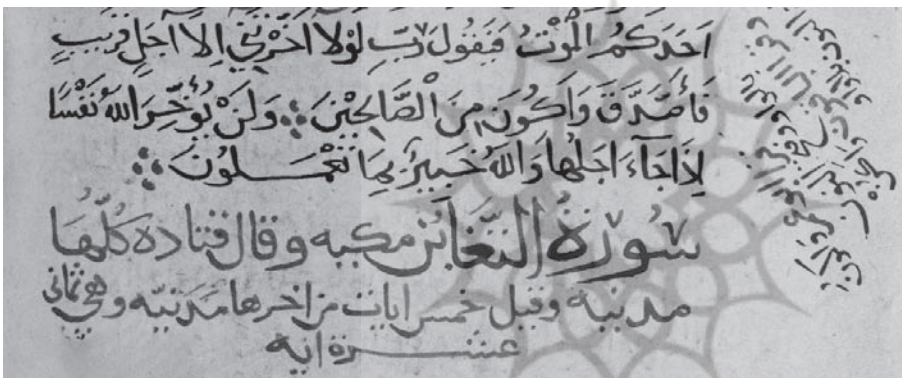 اَحَدَكُمُ الْمَوْتُ فَيَقُولَ رَبِّ لَوْلَا اَخَّرْتَنِي اِلَا اَجَلٍ قَرِيبٍ
فَاَصَّدَّقَ وَاَكُونَ مِنَ الْصَّالِحِيْنَ وَلَنْ يُؤَخِّرَ اللهُ نَفْسًا
اِذَا جَآءَ اَجَلُهَا وَاللهُ خَبِيرٌ بِمَا تَعْمَلُونَ
سُوْرَةُ التَّغَابُن مكيه وقال قتادة كُلُّهَا
مدنيه وقيل خمس ايات من اخرها مَدَنيّه وهي ثماني
عشرة ايه